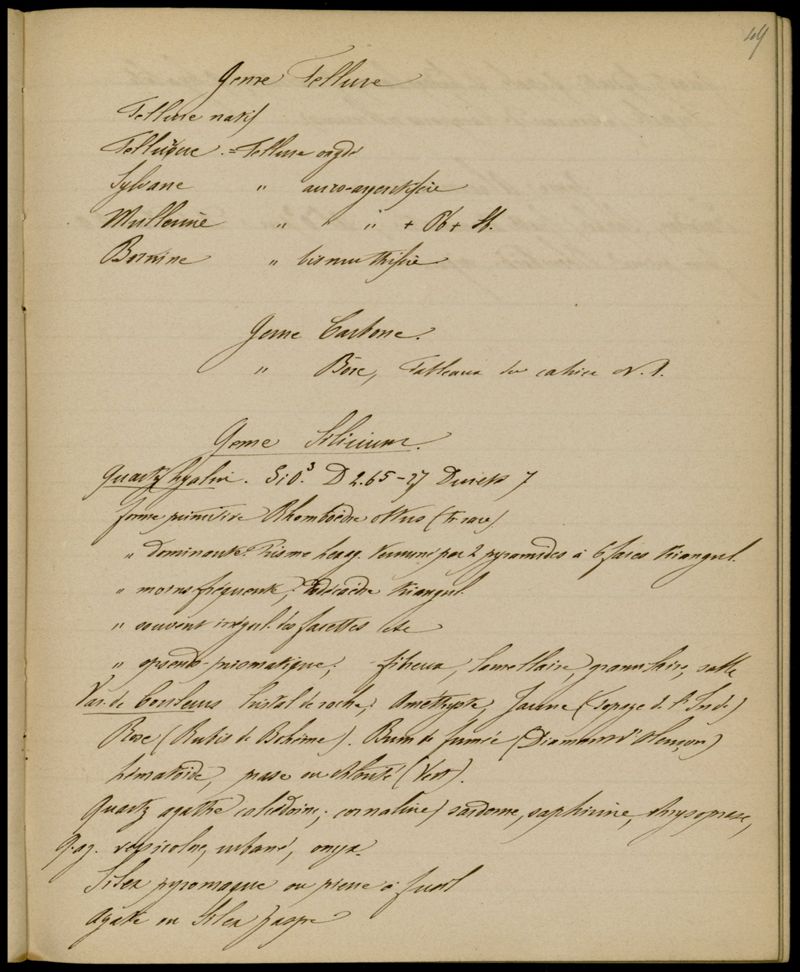 49
Genre Tellure
Tellure natif
Tellurque = Tellure oxydé
Sylvane " auro-argentifère
Mullerine " " + Pb + St.
Bornine " bismuthifère
Genre Carbone.
" Bore, Tableaux du cahier N. 1.
Genre Silicium.
Quartz hyalin. SiO³. D 2.65-27 Dureté 7
forme primitive Rhomboèdre obtus (tr rare)
" dominante. Prisme hexag. terminé par 2 pyramides à 6 faces triangul.
" moins fréquente, Dodécaèdre triangul.
" souvent irrégul. les facettes etc
" pseudo-prismatique; fibreux, lamellaire, granulaire, sable
Var. de Couleurs Cristal de roche; Améthyste, Jaune (Topaze de l'Inde)
Rose (Rubis de Bohème). Brun de fumée (Diamant d'Alençon)
hématoïde, prase ou chlorité (Vert).
Quartz agathe calcédoine; cornaline, sardoine, saphirine, chrysoprase,
Q. ag. versicolor, rubané, onyx.
Silex pyromaque ou pierre à fusil
Agate ou Silex jaspe